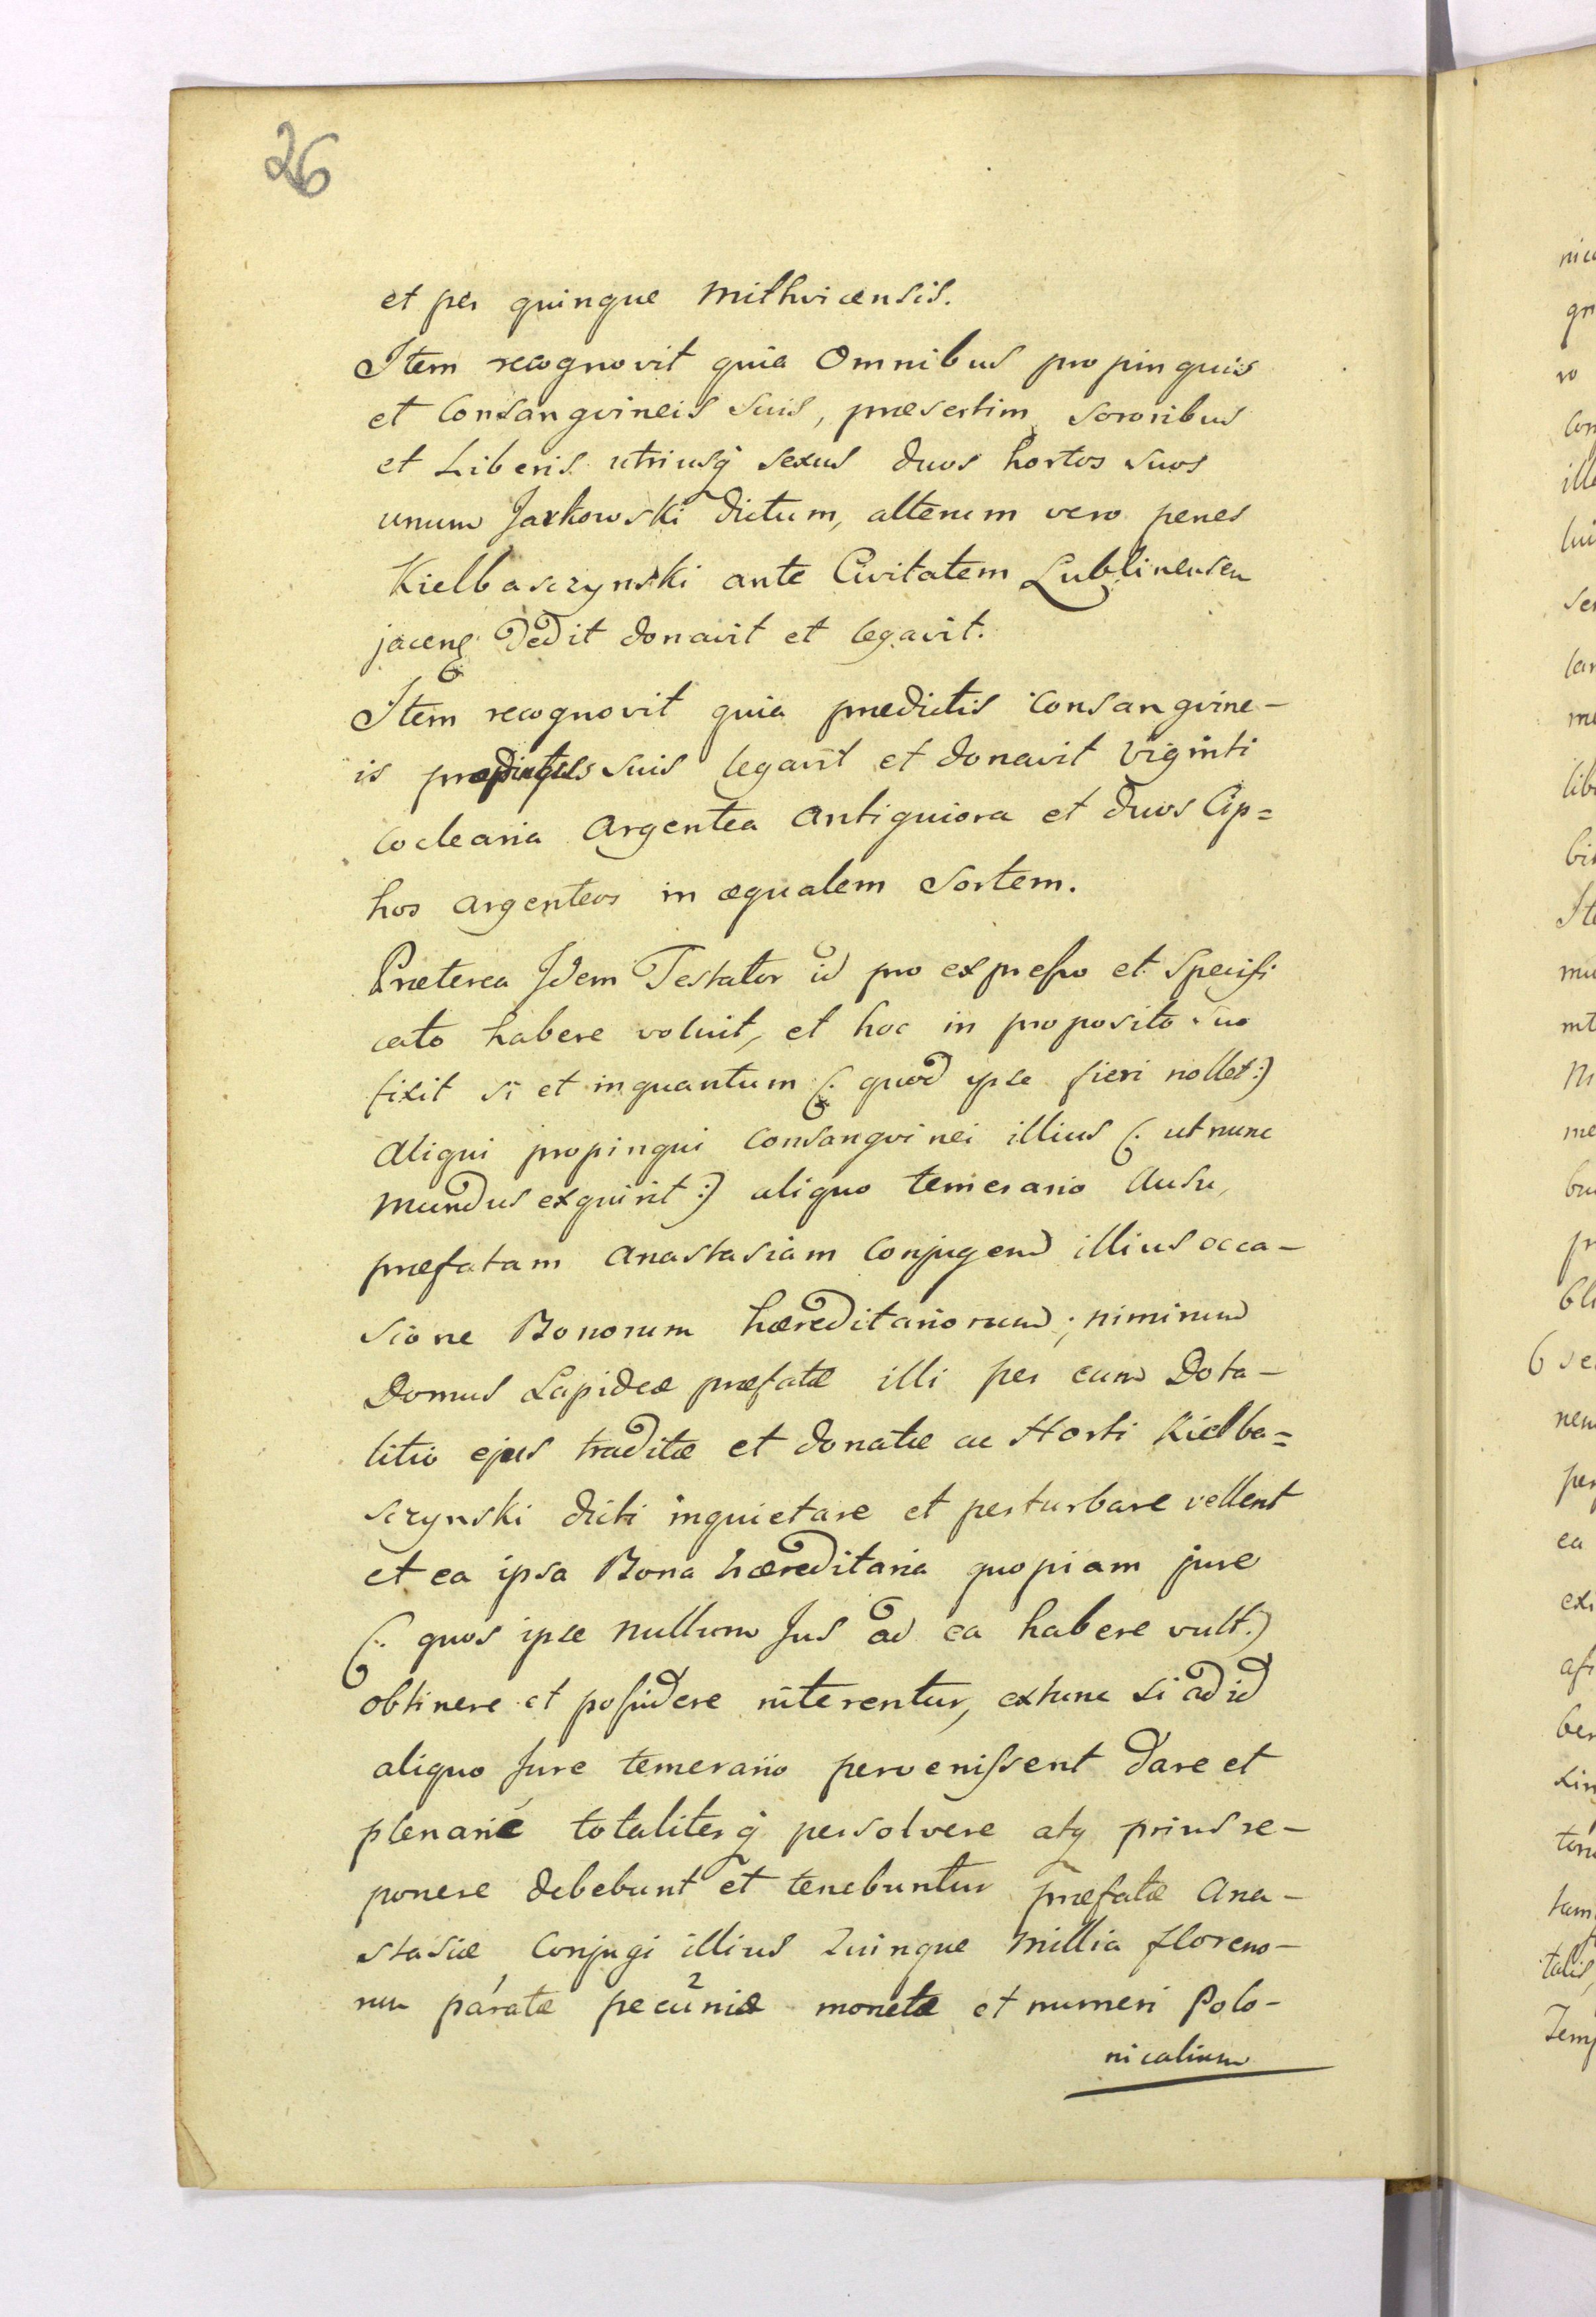 26
et per quinque Mithvicensis.
Item recognovit quia Omnibus propinquis
et Consangvineis suis, præsertim sororibus
et Liberis utriusq sexus duos hortos suos
unum Jarkowski dictum, alterum vero penes
Kielbasczynski ante Civitatem Lublinensem
jacen dedit donavit et legavit.
Item recognovit quia prædictis Consangvine-
is suis legavit et donavit viginti
Coclearia Argentea Antiquiora et duos Cip=
hos Argenteos in æqualem Sortem.
Præterea Idem Testator id pro expresso et Specifi
cato habere voluit, et hoc in proposito suo
fixit si et inquantum (: quod ipse fieri nollet :)
Aliqui propinqui Consangvinei illius (: ut nunc
Mundus exquirit :) aliquo temerario Ausu,
præfatam Anastasiam Conjugem illius occa-
sione Bonorum hæreditariorum; nimirum
Domus Lapideæ præfatæ illi per eum Dota-
litio ejus traditæ et donatæ ac Horti Kielba=
sczynski dicti inquietare et perturbare vellent
et ea ipsa Bona hæreditaria quopiam jure
(: quos ipse nullum Jus ad ea habere vult :)
obtinere et possidere niterentur, extunc si ad id
aliquo Jure temerario pervenissent dare et
plenarié totaliterq persolvere atq prius re-
ponere debebunt et tenebuntur præfatæ Ana-
stasiæ Conjugi illius Quinque Millia floreno-
rum paratæ pecuniæ monetæ et numeri Polo-
nicalium